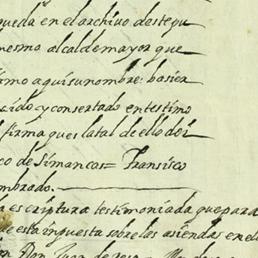 queda en el archivo deste pu
mesmo alcalde mayor que
irmo aqui su nombre: ba sier
cido y consertado en testimo
firma ques la tal de ello doi
co de simancas = Fransisco
mbrado.
a escriptura testimoniada que para
que esta inpuesta sobre las asiendas en el
Don Juan de